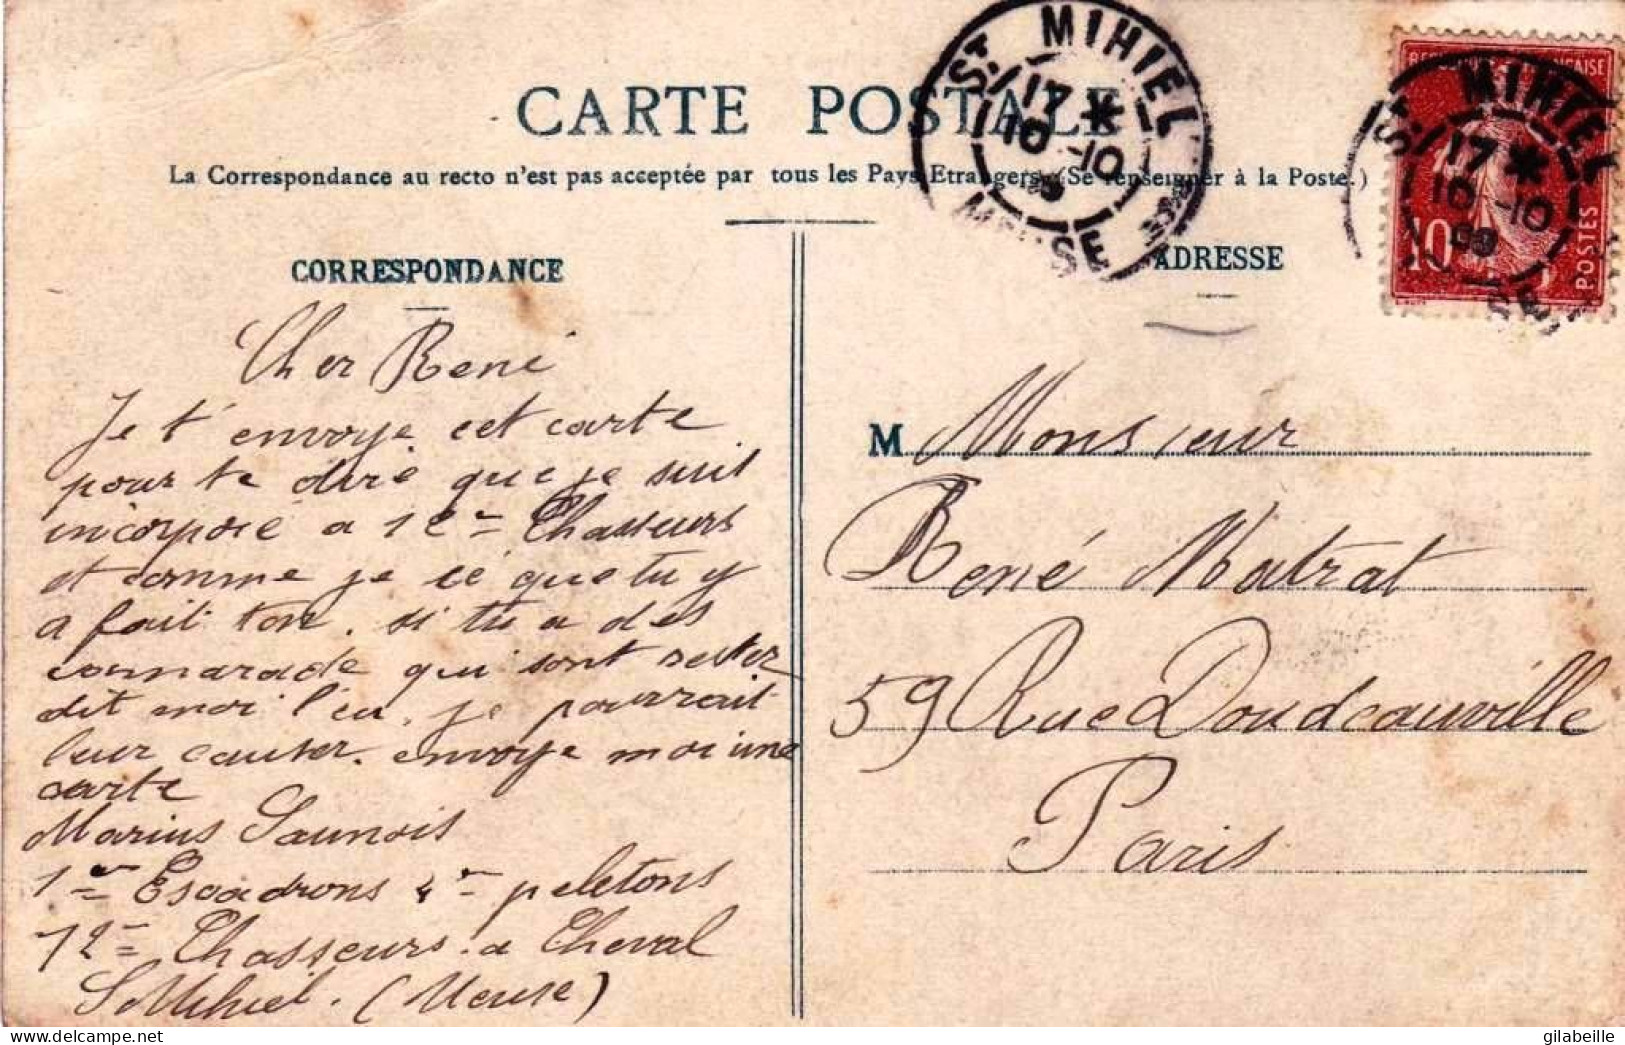 CARTE POSTALE
La Correspondance au recto n'est pas acceptée par tous les Pays Etrangers (Se renseigner à la Poste.)
CORRESPONDANCE
Cher René
Je t'envoye cet carte
pour te dire que je suit
incorporé a 12e Chasseurs
et comme je cé que tu y
a fait ton. si tu a des
camarade qui sont rester
dit moi l'eu. je pourrait
leur causer. envoye moi une
carte
Marius Saunois
1er Escadrons 4e peletons
12e Chasseurs a Cheval
St Mihiel. (Meuse)
ADRESSE
M Monsieur
René Matrat
59 Rue Doudeauville
Paris
ST MIHIEL
17 *
10 -10
09
MEUSE
REPUBLIQUE FRANÇAISE
10
POSTES
ST MIHIEL
17 *
10 -10
09
delcampe.net
gilabeille